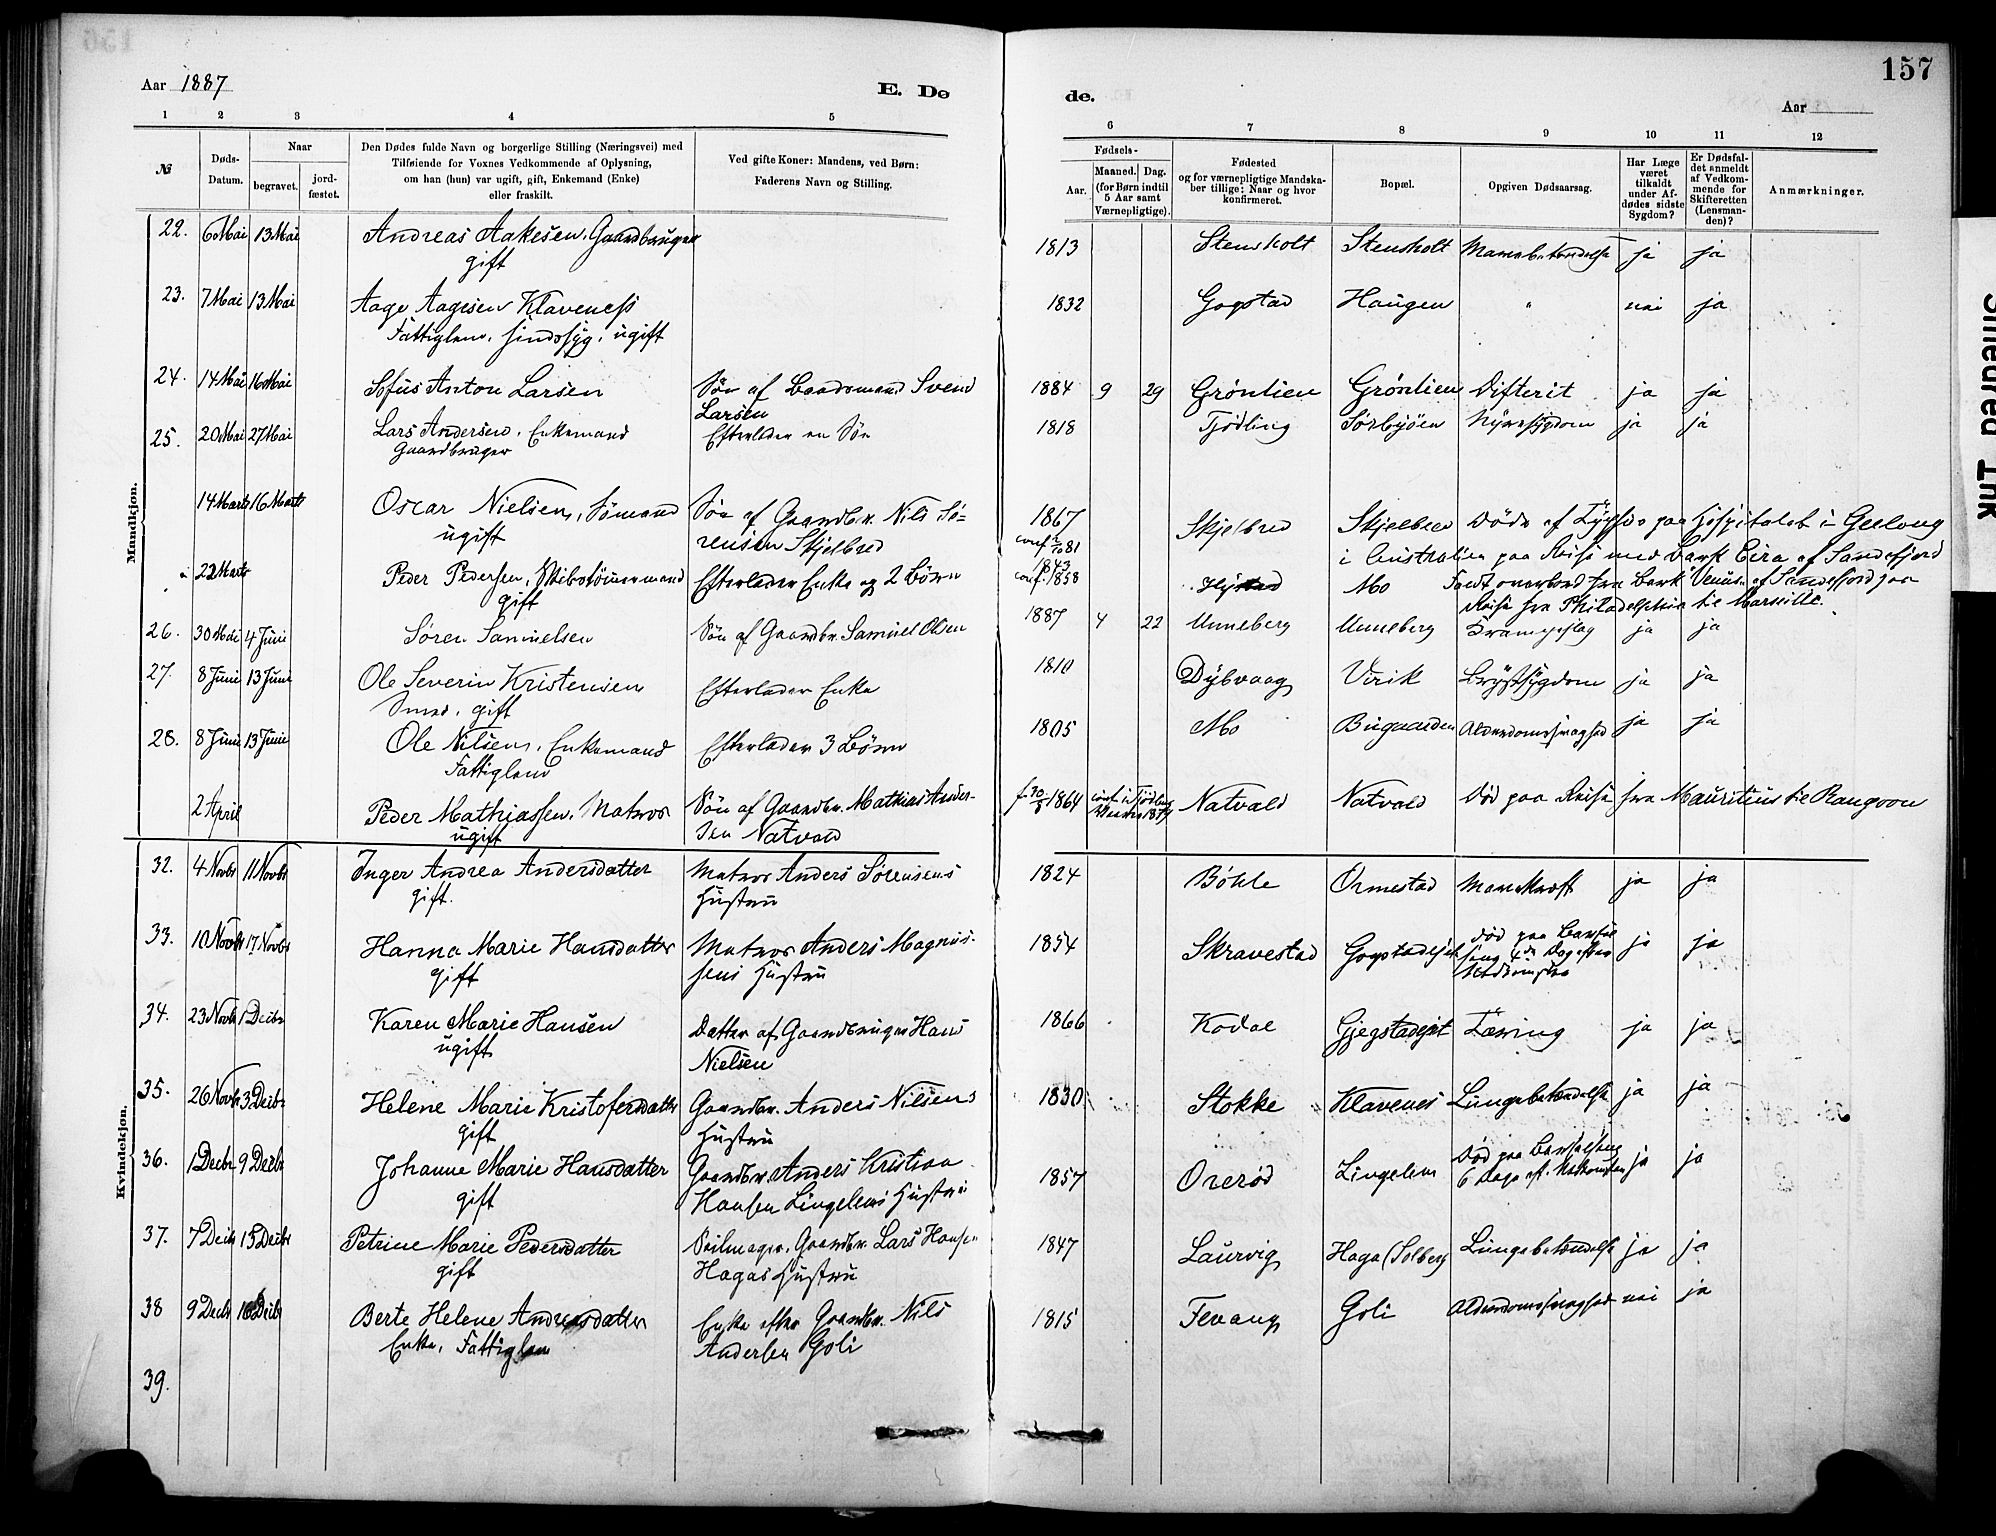 157
Aar 1887
E. Dø
de.
Aar
1 2 3 4 5
6 7 8 9 10 11 12
№
Døds-
Datum.
Naar
begravet.
jord-
fæstet.
Den Dødes fulde Navn og borgerlige Stilling (Næringsvei) med
Tilføiende for Voxnes Vedkommende af Oplysning,
om han (hun) var ugift, gift, Enkemand (Enke)
eller fraskilt.
Ved gifte Koner: Mandens, ved Børn:
Faderens Navn og Stilling.
Fødsels-
Aar.
Maaned. Dag.
(for Børn indtil
5 Aar samt
Værnepligtige).
Fødested
og for værnepligtige Mandska-
ber tillige: Naar og hvor
konfirmeret.
Bopæl.
Opgiven Dødsaarsag.
Har Læge
været
tilkaldt
under Af-
dødes sidste
Sygdom?
Er Dødsfal-
det anmeldt
af Vedkom-
mende for
Skifteretten
(Lensman-
den)?
Anmærkninger.
Mandkjøn.
22. 6 Mai 13 Mai Andreas Aakesen, Gaardbruger 1813 Stensholt Stensholt Mavebetændelse ja ja
gift
23. 7 Mai 13 Mai Aage Aagesen Klaveness 1832 Gogstad Haugen " nei ja
Fattiglem, sindssyg, ugift
24. 14 Mai 16 Mai Sofus Anton Larsen Søn af Baadsmand Svend 1884 9 29 Grönlien Grönlien Difterit ja ja
Larsen
25. 20 Mai 27 Mai Lars Andersen, Enkemand Efterlader en Søn 1818 Tjödling Nyresygdom ja ja
Gaardbruger
14 Marts 16 Marts Oscar Nielsen, Sømand Søn af Gaardbr. Nils Sö- 1867 Skjelbred Skjelbred Döde af Tyfus paa Hospitalet i Geelong
ugift rensen Skjelbred conf. 81 i Australien paa Reise med Bark Eira af Sandefjord
22 Marts Peder Pedersen, Skibstömmermand Efterlader Enke og 2 Börn 1843 conf. 1858 Mo Faldt overbord fra Bark Venus af Sandefjord paa
gift Reise fra Philadelphia til Marseille.
26. 30 Mai 4 Juni Søren Samuelsen Søn af Gaardbr. Samuel Olsen 1887 4 22 Unneberg Unneberg Krampeslag ja ja
27. 8 Juni 13 Juni Ole Severin Kristensen Efterlader Enke 1810 Dybvaag Virik Brystsygdom ja ja
Smed, gift
28. 8 Juni 13 Juni Ole Nilsen, Enkemand Efterlader 3 Börn 1805 Mo Bugaarden Alderdomssvaghed ja ja
Fattiglem
2 April Peder Mathiassen, Matros Søn af Gaardbr. Mathias Ander- f. 1864 conf. i Tjödling 1879 Natvald Natvald Död paa Reise fra Mauritius til Rangoon
ugift sen Natvald
Kvindekjøn.
32. 4 Novbr 11 Novbr Inger Andrea Andersdatter Matros Anders Sørensens 1824 Böhle Ormestad Mavekræft ja ja
gift. Hustru
33. 10 Novbr 17 Novbr Hanna Marie Hansdatter Matros Anders Magnus- 1854 Skravestad Gogstadejet död paa Barsel ja ja
gift sens Hustru seng 4de Dag efter
Nedkomsten
34. 23 Novbr 1 Decbr Karen Marie Hansen Datter af Gaardbruger Hans 1866 Kodal Gjegstadejet Tæring ja ja
ugift Nielsen
35. 26 Novbr 3 Decbr Helene Marie Kristofersdatter Gaardbr. Anders Nilsens 1830 Stokke Klavenes Lungebetændelse ja ja
gift Hustru
36. 1 Decbr 9 Decbr Johanne Marie Hansdatter Gaardbr. Anders Kristian 1857 Overød Lingelem Död paa Barselseng ja ja
gift Hansen Lingelems Hustru 6 Dage eft. Nedkomsten
37. 7 Decbr 15 Decbr Petrine Marie Pedersdatter Seilmager, Gaardbr. Lars Hansen 1847 Laurvig Haga (Solberg Lungebetændelse ja ja
gift Hagas Hustru
38 9 Decbr Decbr Berte Helene Andreasdatter Enke efter Gaardbr. Nils 1815 Fevang Goli Alderdomssvaghed nei ja
Enke, Fattiglem Andersen Goli
39.